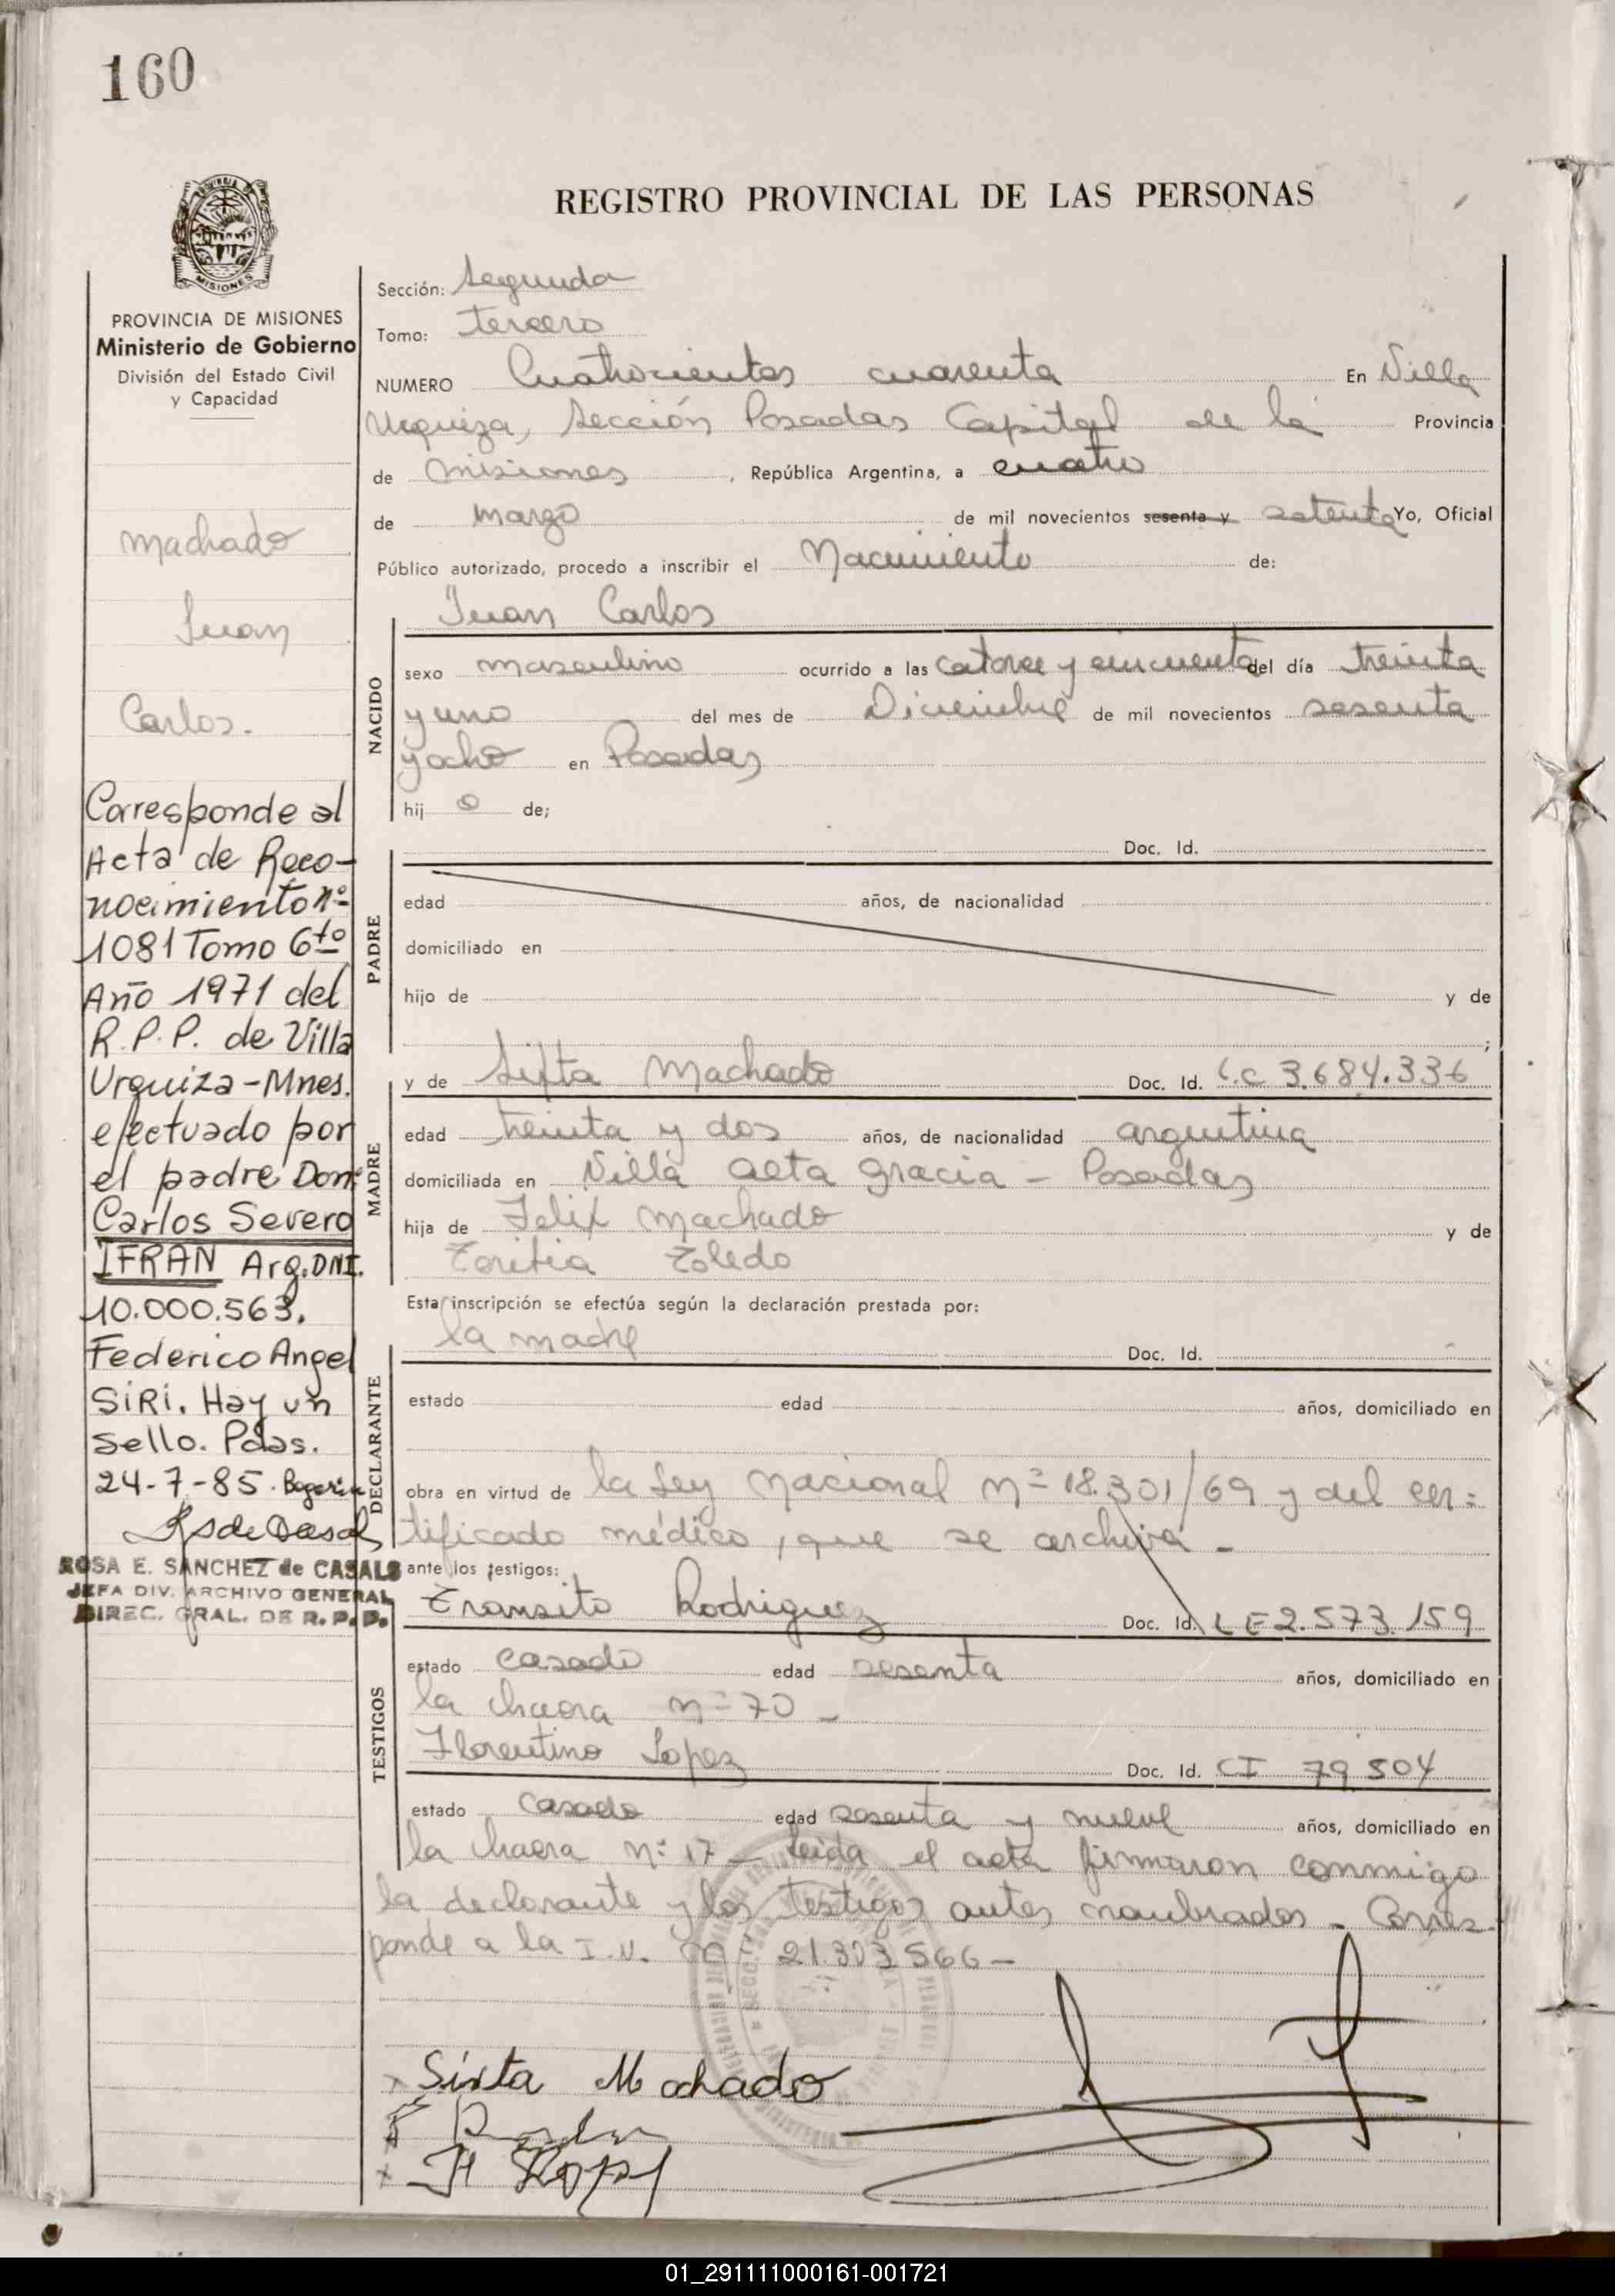 160
REGISTRO PROVINCIAL DE LAS PERSONAS
MISIONES
PROVINCIA DE MISIONES
Ministerio de Gobierno
División del Estado Civil
y Capacidad
machado
Juan
Carlos.
Corresponde al
Acta de Reco-
nocimiento nº
1081 Tomo 6to
Año 1971 del
R.P.P. de Villa
Urquiza-Mnes.
efectuado por
el padre Don:
Carlos Severo
IFRAN Arg. DNI.
10.000.563.
Federico Angel
SIRI. Hay un
Sello. Pdas.
24-7-85.
ROSA E. SANCHEZ de CASALS
JEFA DIV. ARCHIVO GENERAL
DIREC. GRAL. DE R.P.P.
Sección: Segunda
Tomo: tercero
NUMERO Cuatrocientos cuarenta En Villa
Urquiza, Sección Posadas Capital de la Provincia
de misiones, República Argentina, a cuatro
de marzo de mil novecientos sesenta y setenta Yo, Oficial
Público autorizado, procedo a inscribir el Nacimiento de:
Juan Carlos
NACIDO
sexo masculino ocurrido a las catorce y cincuenta del día treinta
y uno del mes de Diciembre de mil novecientos sesenta
y ocho en Posadas
hijo de;
Doc. Id.
PADRE
edad años, de nacionalidad
domiciliado en
hijo de y de
;
y de Sixta Machado Doc. Id. L.C 3.684.336
MADRE
edad treinta y dos años, de nacionalidad argentina
domiciliada en Villa alta gracia - Posadas
hija de Felix machado y de
Toledo
Esta inscripción se efectúa según la declaración prestada por:
la madre Doc. Id.
DECLARANTE
estado edad años, domiciliado en
obra en virtud de la Ley Nacional nº 18.301/69 y del cer=
tificado médico, que se archiva -
ante los testigos:
Transito Rodriguez Doc. Id. LE 2.573.159
TESTIGOS
estado casado edad sesenta años, domiciliado en
la chacra nº 70 -
Florentino Lopez Doc. Id. CI 79.504
estado casado edad sesenta y nueve años, domiciliado en
la chacra nº 17 - Leida el acta firmaron conmigo
la declarante y los testigos antes nombrados - Corres-
ponde a la I.N. nº 21.303.566-
x Sixta Machado
x
x
01_291111000161-001721